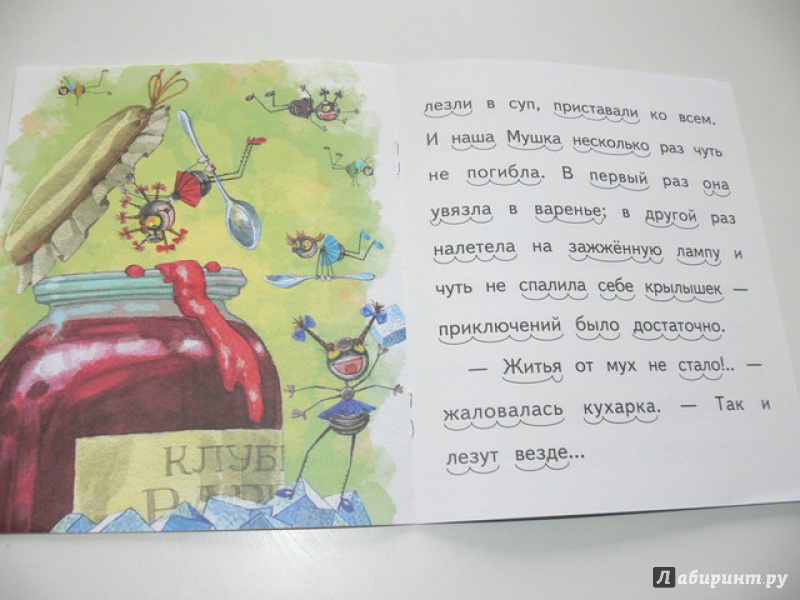 КЛУБ
лезли в суп, приставали ко всем.
И наша Мушка несколько раз чуть
не погибла. В первый раз она
увязла в варенье; в другой раз
налетела на зажжённую лампу и
чуть не спалила себе крылышек —
приключений было достаточно.
— Житья от мух не стало!.. —
жаловалась кухарка. — Так и
лезут везде...
Лабиринт.ру